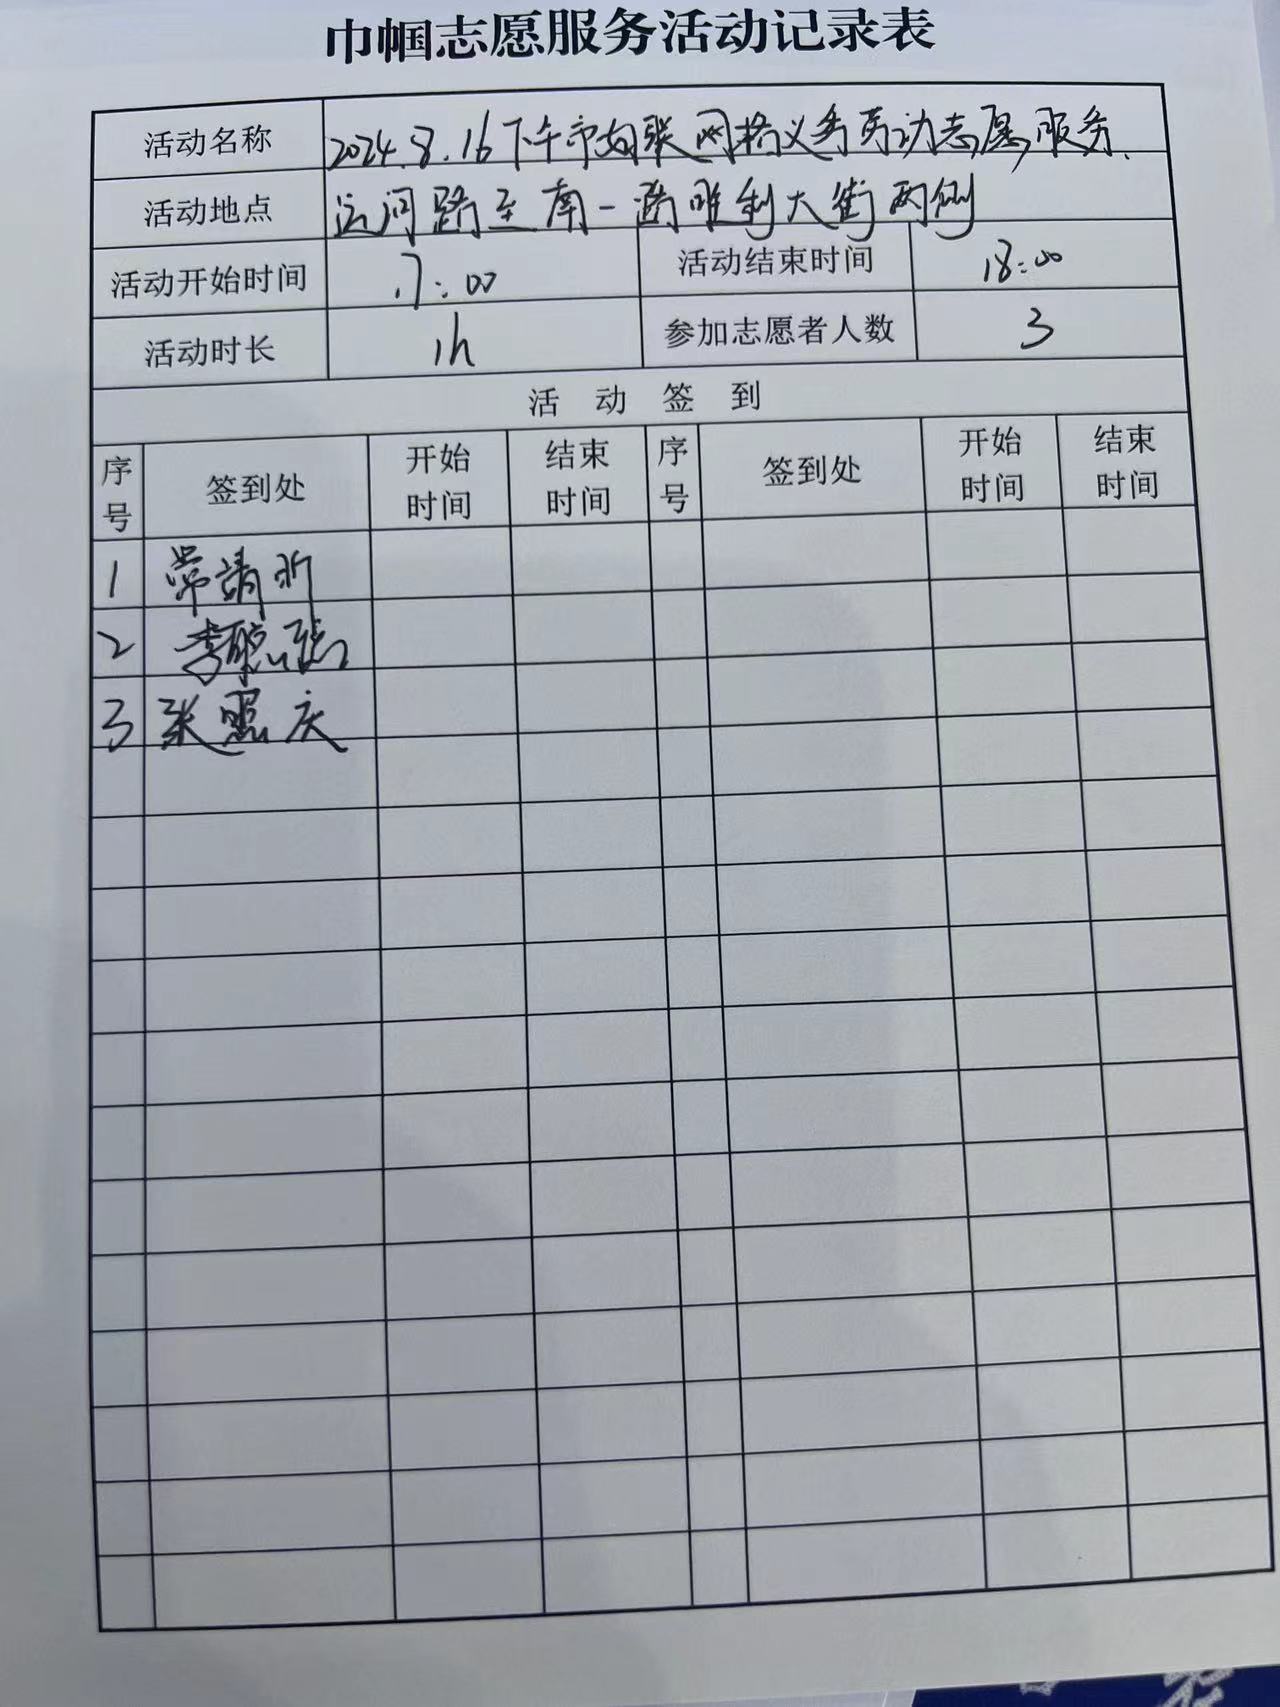 巾帼志愿服务活动记录表
活动名称 2024.8.16下午市妇联网格义务劳动志愿服务.
活动地点 运河路至南一路胜利大街两侧
活动开始时间 17:00 活动结束时间 18:00
活动时长 1h 参加志愿者人数 3
活动签到
序号 签到处 开始时间 结束时间 序号 签到处 开始时间 结束时间
1 常靖昕
2 李聪
3 张照庆